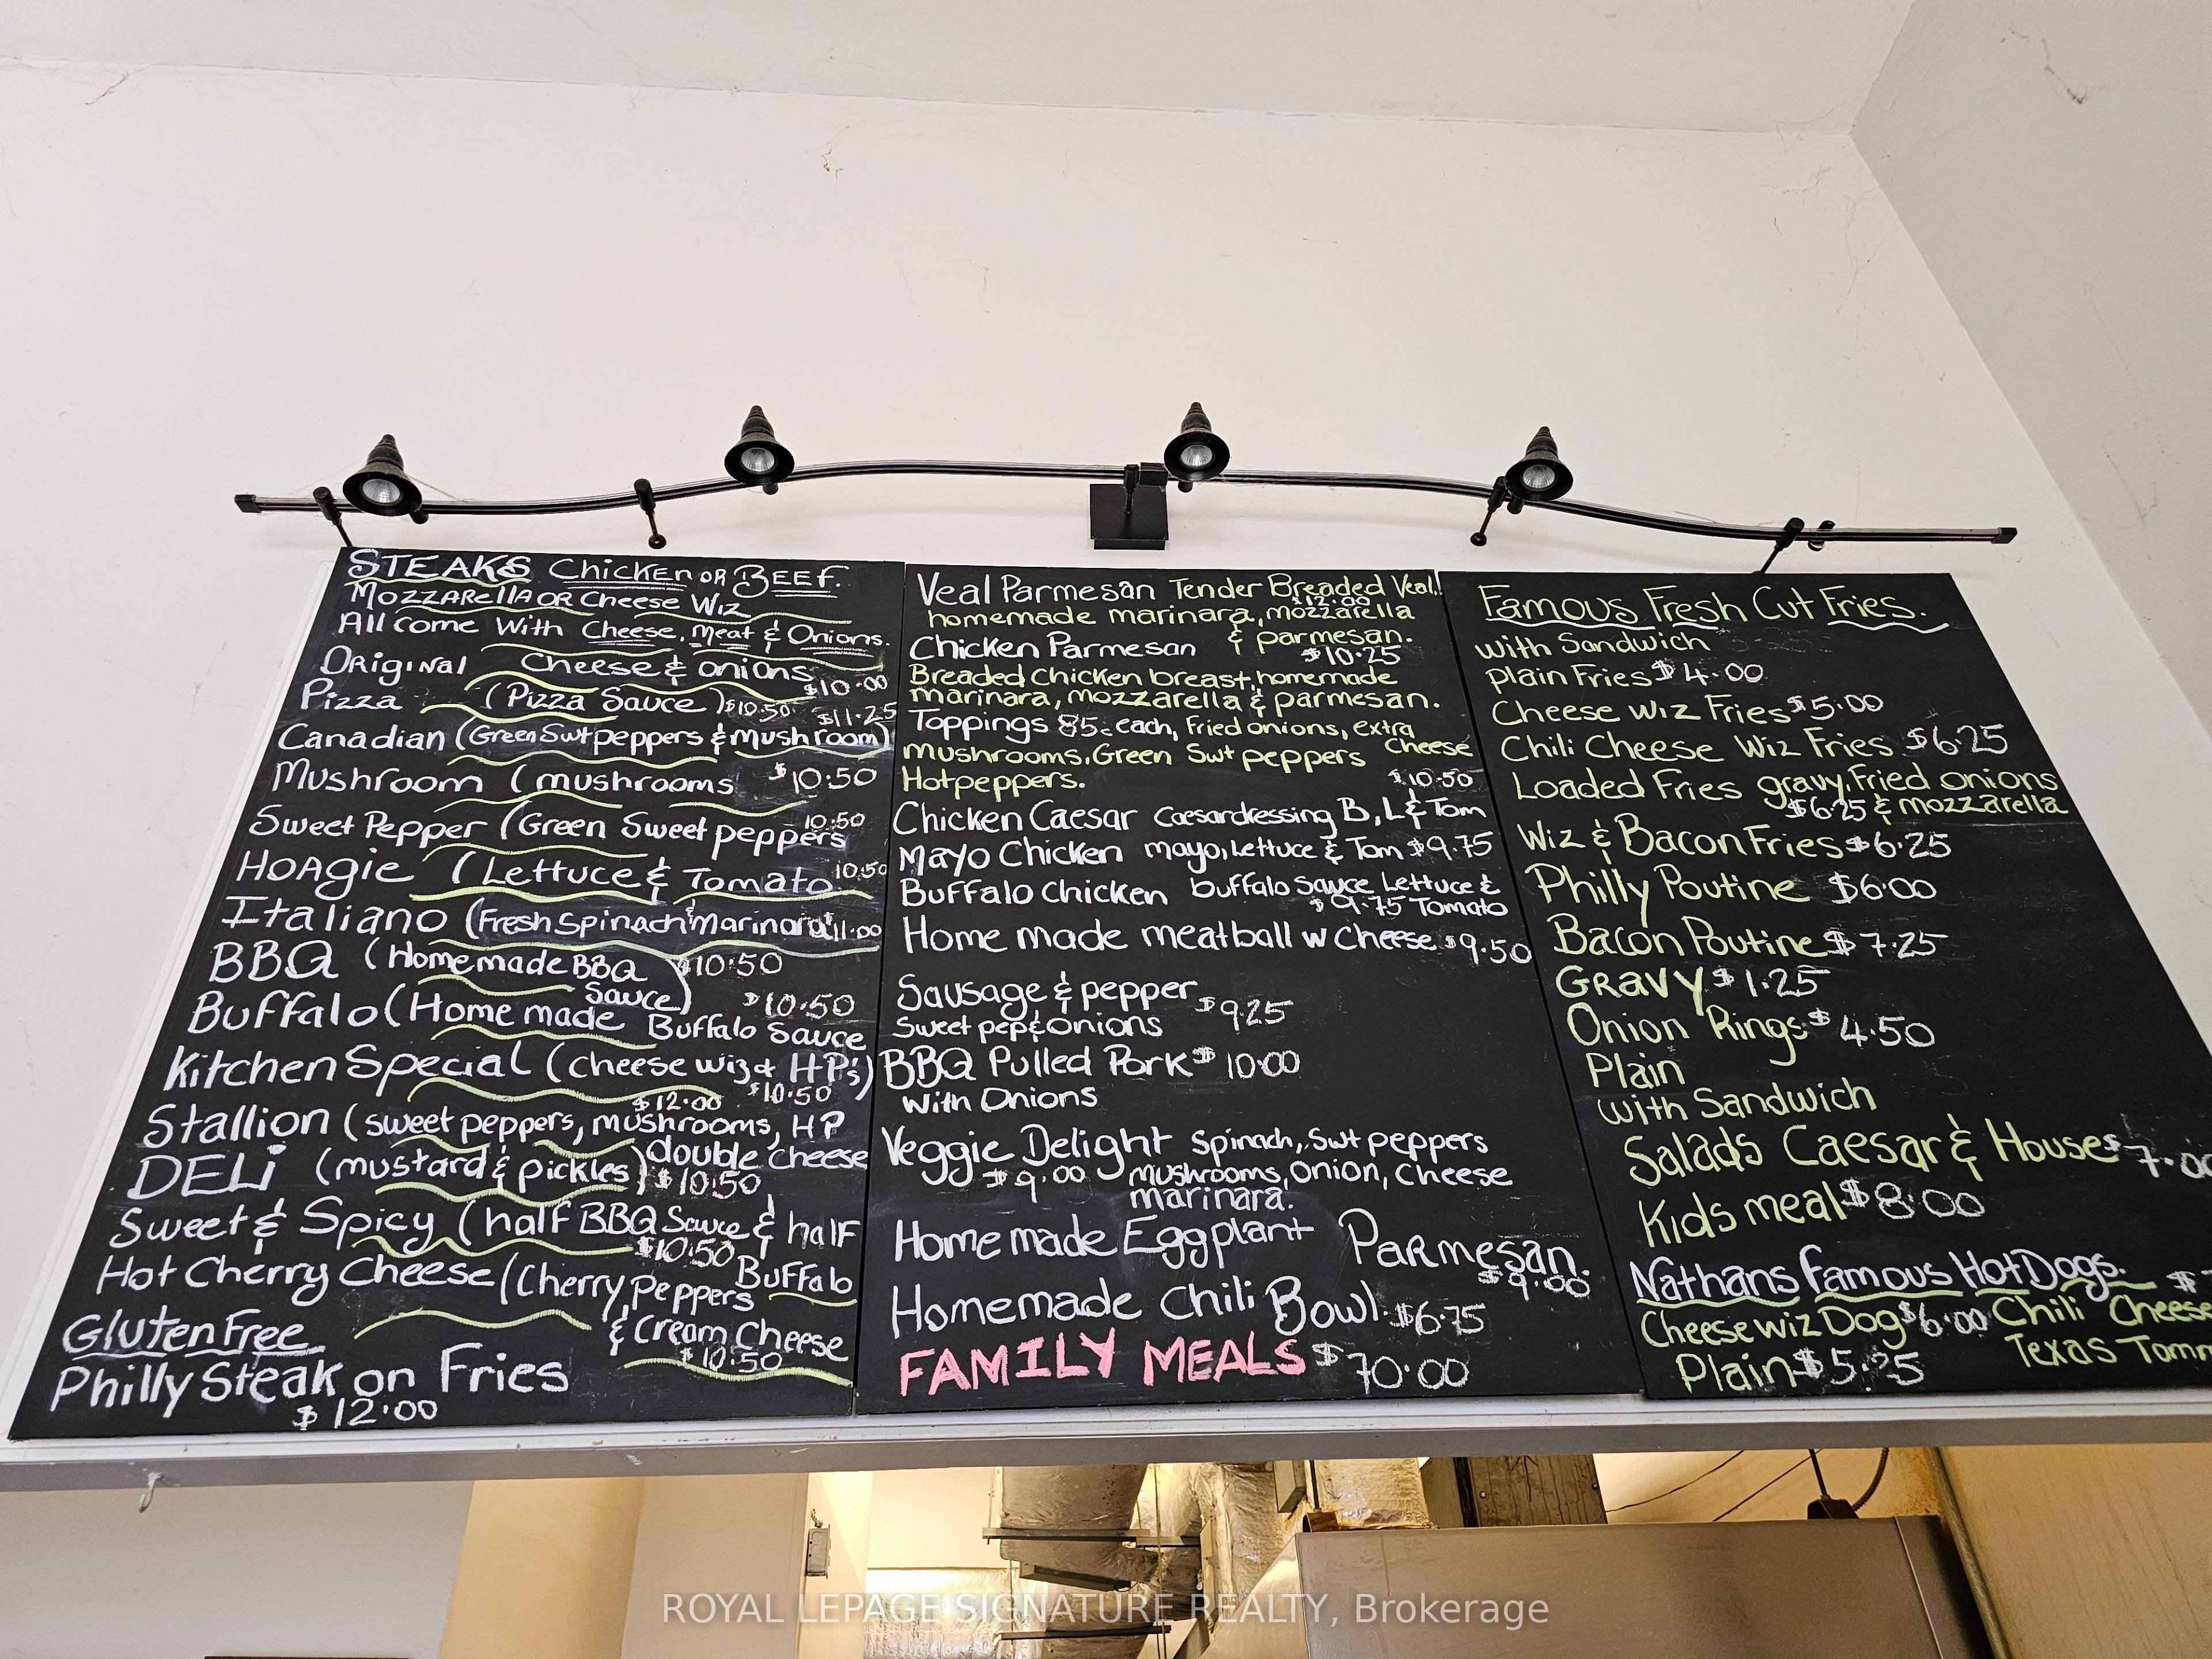 STEAKS Chicken or BEEF.
Mozzarella or Cheese Wiz
All come with Cheese, Meat & Onions.
Original Cheese & onions
$10.00
Pizza (Pizza Sauce) $10.50 $11.25
Canadian (Green Swt peppers & Mushroom)
Mushroom (mushrooms $10.50
10.50
Sweet Pepper (Green Sweet peppers
HOAgie (Lettuce & Tomato 10.50
Italiano (Fresh Spinach & Marinara 11.00
BBQ (Homemade BBQ $10.50
Sauce)
Buffalo (Home made $10.50
Buffalo Sauce
Kitchen Special (cheese wiz & HP's)
$12.00 $10.50
Stallion (sweet peppers, mushrooms, HP
double cheese
DELi (mustard & pickles) $10.50
Sweet & Spicy (half BBQ Sauce & half
$10.50 Buffalo
Hot Cherry Cheese (Cherry Peppers
& Cream Cheese
$10.50
Gluten Free
Philly Steak on Fries
$12.00
Veal Parmesan Tender Breaded Veal.
$12.00
homemade marinara, mozzarella
& parmesan.
Chicken Parmesan $10.25
Breaded Chicken breast, homemade
marinara, mozzarella & parmesan.
Toppings 85c each, Fried onions, extra
cheese
mushrooms, Green Swt peppers
Hotpeppers. $10.50
Chicken Caesar Caesardressing B, L & Tom
Mayo Chicken mayo, Lettuce & Tom $9.75
Buffalo Chicken buffalo sauce Lettuce &
$9.75 Tomato
Home made meatball w Cheese $9.50
Sausage & pepper $9.25
Sweet pep & Onions
BBQ Pulled Pork $10.00
With Onions
Veggie Delight Spinach, Swt peppers
$9.00 mushrooms, onion, Cheese
marinara.
Home made Eggplant Parmesan.
$9.00
Homemade Chili Bowl. $6.75
FAMILY MEALS $70.00
Famous Fresh Cut Fries.
with Sandwich
plain Fries $4.00
Cheese Wiz Fries $5.00
Chili Cheese Wiz Fries $6.25
Loaded Fries gravy, Fried onions
$6.25 & mozzarella
Wiz & Bacon Fries $6.25
Philly Poutine $6.00
Bacon Poutine $7.25
GRAVY $1.25
Onion Rings $4.50
Plain
with Sandwich
Salads Caesar & House $7.00
Kids meal $8.00
Nathans Famous Hot Dogs. $
Cheese wiz Dog $6.00 Chili Cheese
Texas
Plain $5.25
ROYAL LEPAGE SIGNATURE REALTY, Brokerage